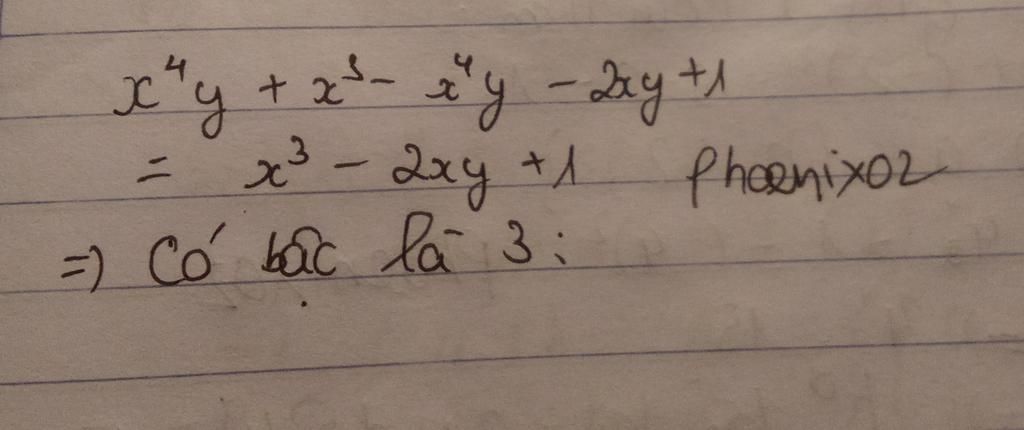 x⁴y + x³ - x⁴y - 2xy + 1
= x³ - 2xy + 1 phoenix02
=) Có bậc là 3: